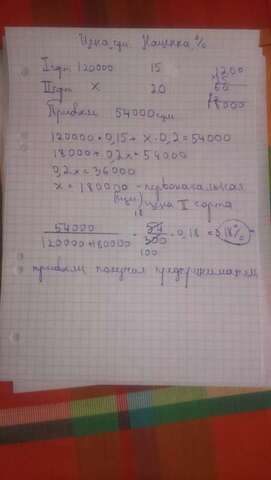 Цена, сум Наценка, %
I сорт 120000 15
II сорт x 20
1200
15
60
12
18000
Прибыль 54000 сум
120000 · 0,15 + x · 0,2 = 54000
18000 + 0,2x = 54000
0,2x = 36000
x = 180000 - первоначальная
цена II сорта
54000 / 120000 + 180000 = 54 / 300 = 0,18 = 18%
18
100
прибыли получил предприниматель